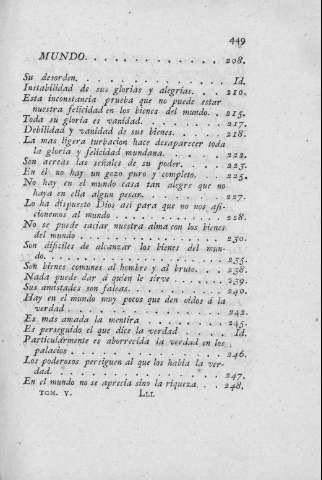 449
MUNDO. . . . . . . . . . . . . 208.
Su desorden. . . . . . . . . . . . . Id.
Instabilidad de sus glorias y alegrías. . . . 210.
Esta inconstancia prueba que no puede estar
nuestra felicidad en los bienes del mundo. . 215.
Toda su gloria es vanidad. . . . . . . . 217.
Debilidad y vanidad de sus bienes. . . . . 218.
La mas ligera turbacion hace desaparecer toda
la gloria y felicidad mundana. . . . . . 222.
Son acreas las señales de su poder. . . . . 223.
En él no hay un gozo puro y completo. . . . 225.
No hay en el mundo casa tan alegre que no
haya en ella algun pesar. . . . . . . . 227.
Lo ha dispuesto Dios asi para que no nos afi-
cionemos al mundo . . . . . . . . . 228.
No se puede saciar nuestra alma con los bienes
del mundo . . . . . . . . . . . . 230.
Son dificiles de alcanzar los bienes del mun-
do. . . . . . . . . . . . . . . 235.
Son bienes comunes al hombre y al bruto. . . 238.
Nada puede dar á quien le sirve . . . . . 239.
Sus amistades son falsas. . . . . . . . 240.
Hay en el mundo muy pocos que den oidos á la
verdad . . . . . . . . . . . . . 242.
Es mas amada la mentira . . . . . . . 245.
Es perseguido el que dice la verdad . . . . Id.
Particularmente es aborrecida la verdad en los
palacios . . . . . . . . . . . . . 246.
Los poderosos persiguen al que los habla la ver-
dad. . . . . . . . . . . . . . . 247.
En el mundo no se aprecia sino la riqueza. . . 248.
TOM. V. LLL